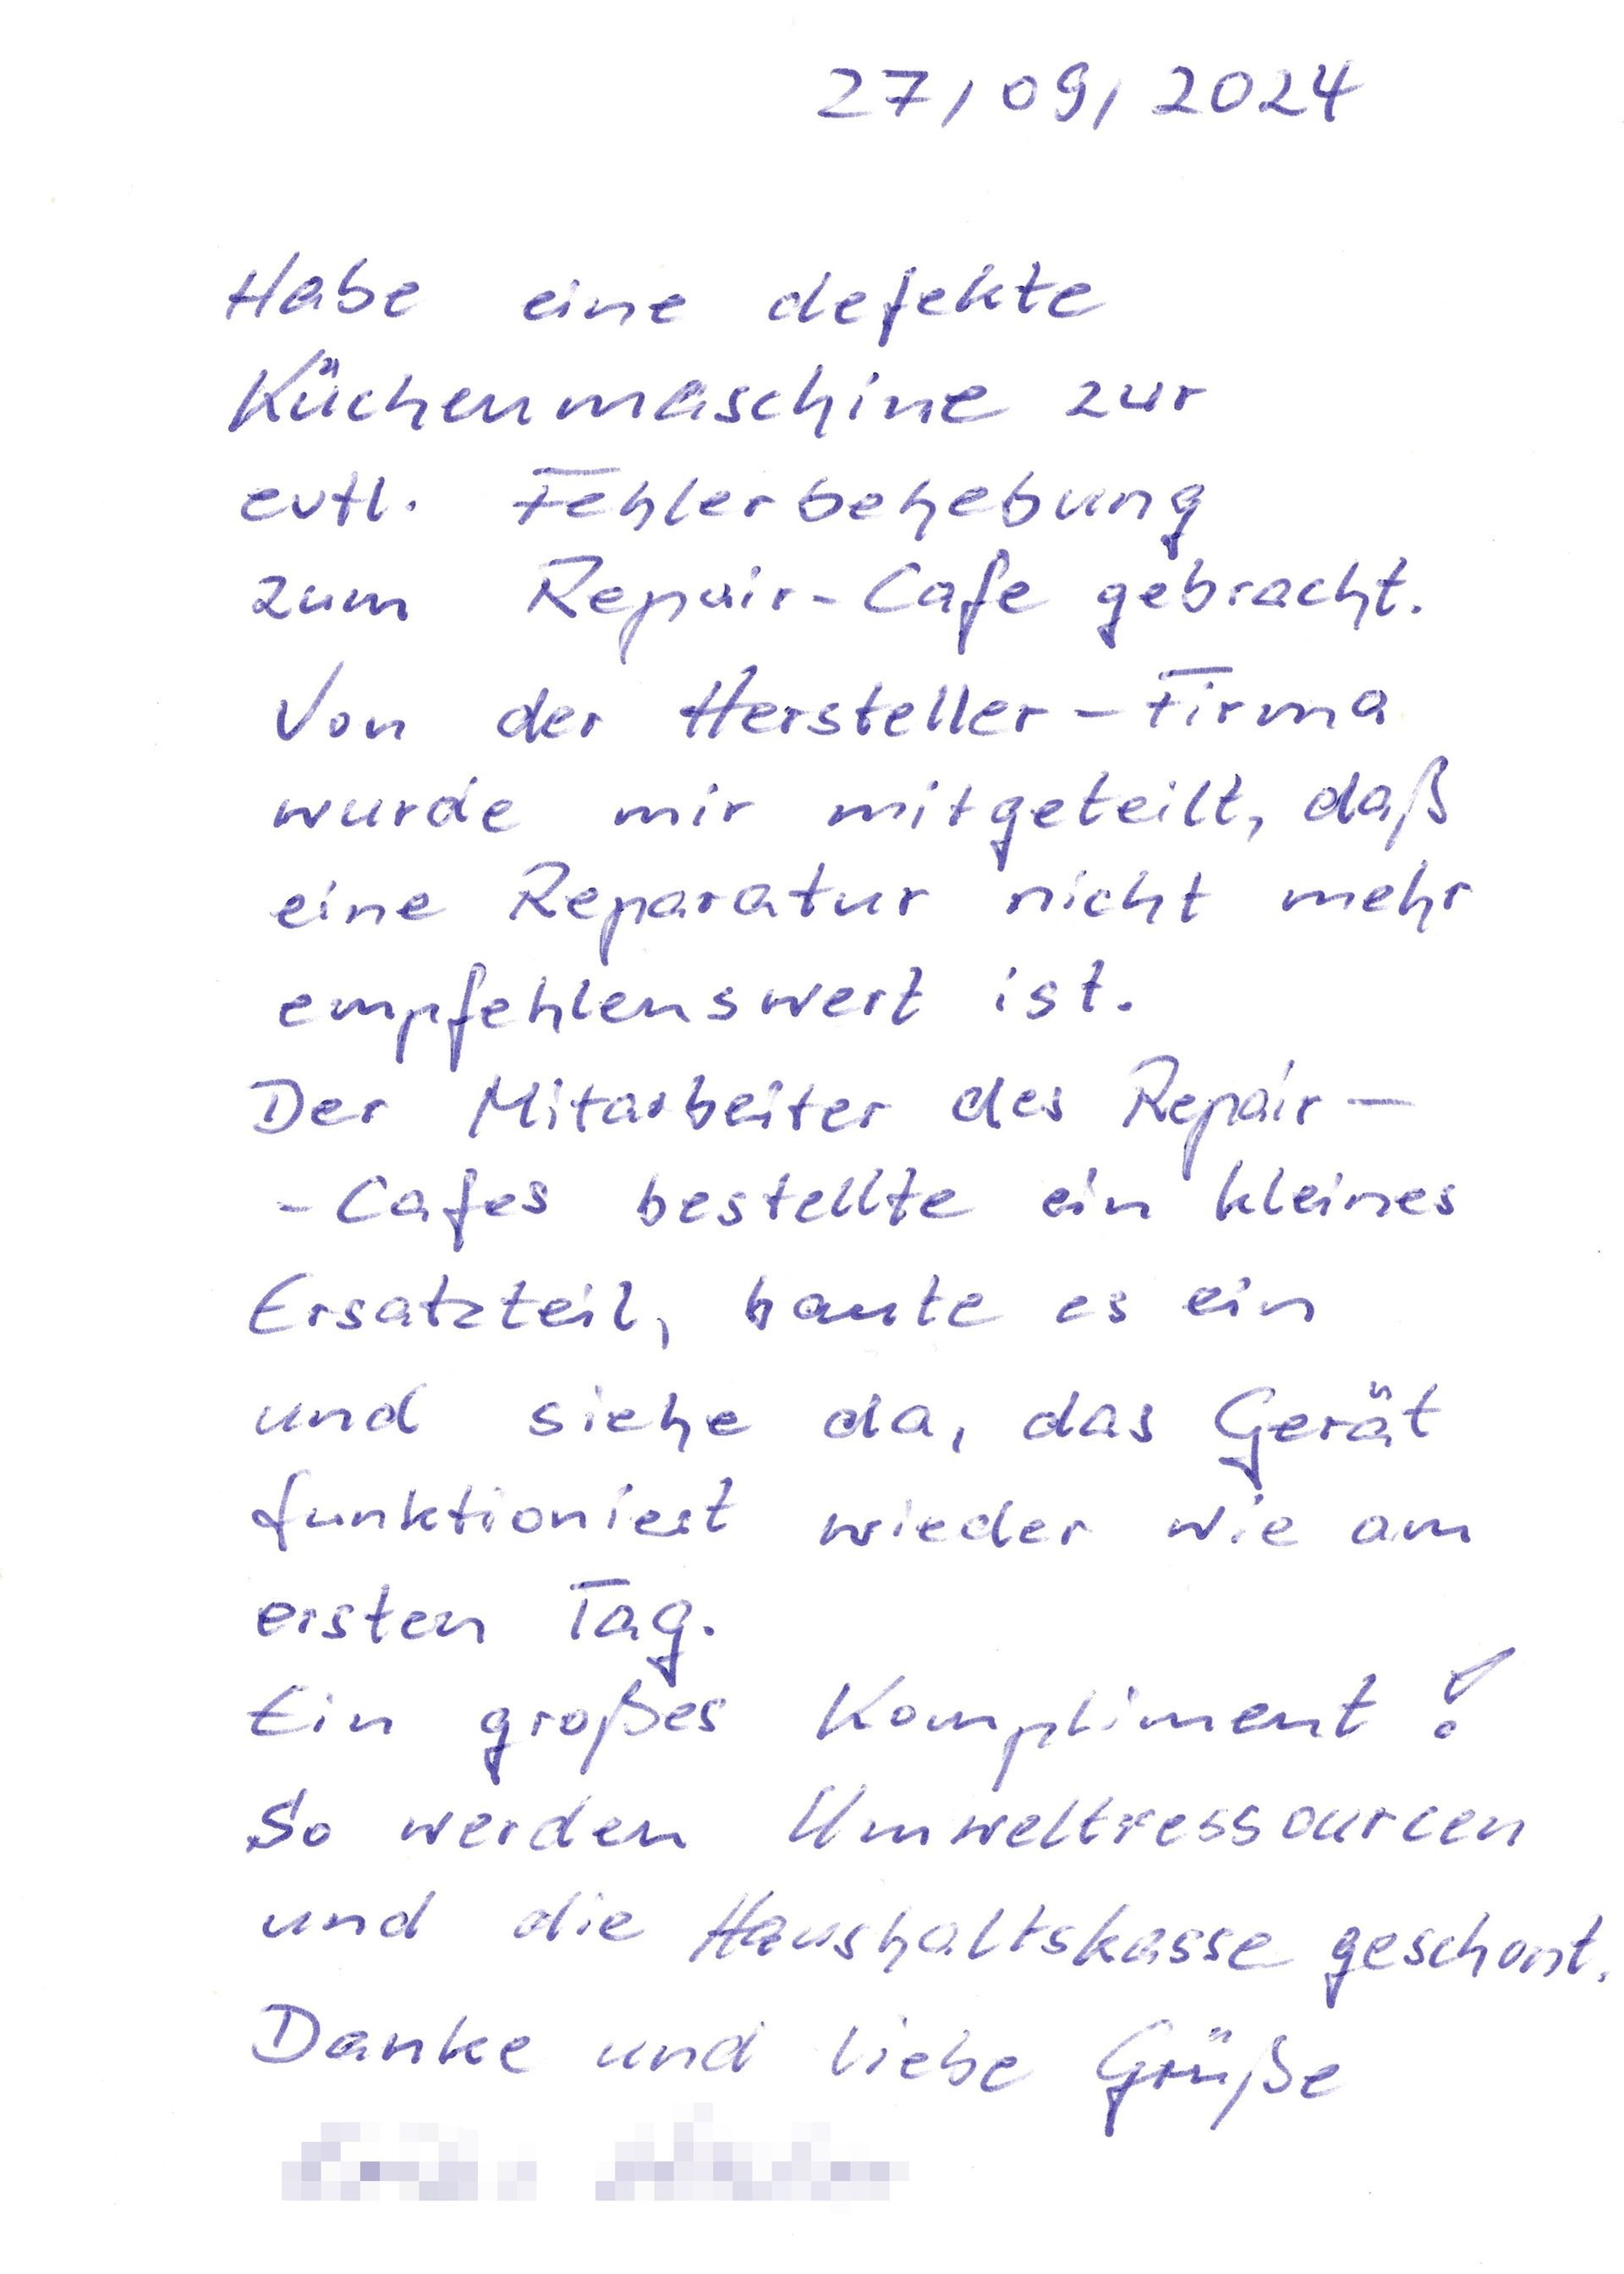 27/09/2024
Habe eine defekte
Küchenmaschine zur
evtl. Fehlerbehebung
zum Repair-Cafe gebracht.
Von der Hersteller-Firma
wurde mir mitgeteilt, daß
eine Reparatur nicht mehr
empfehlenswert ist.
Der Mitarbeiter des Repair-
-Cafes bestellte ein kleines
Ersatzteil, baute es ein
und siehe da, das Gerät
funktioniert wieder wie am
ersten Tag.
Ein großes Kompliment!
So werden Umweltressourcen
und die Haushaltskasse geschont.
Danke und liebe Grüße